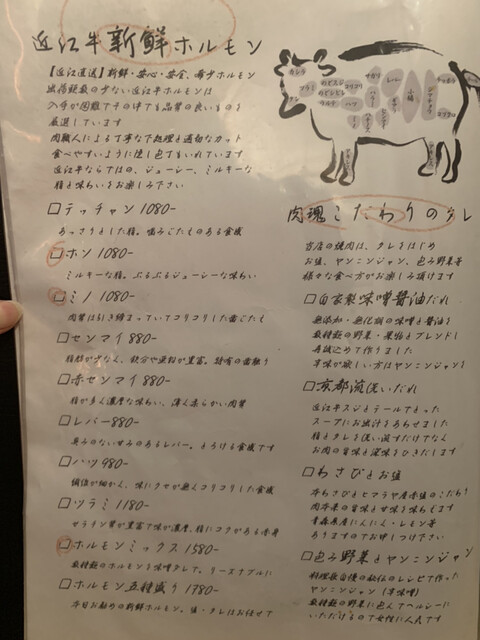 近江牛新鮮ホルモン
【近江直送】新鮮・安心・安全、希少ホルモン
出荷頭数の少ない近江牛ホルモンは
入手が困難でその中でも品質の良いものを
厳選しています
肉職人による丁寧な下処理と適切なカット
食べやすいように隠し包丁もいれています
近江牛ならではの、ジューシー、ミルキーな
脂と味わいをお楽しみ下さい
□テッチャン 1080-
あっさりとした脂。噛みごたえのある食感
□ホソ 1080-
ミルキーな脂。ぷるぷるジューシーな味わい
□ミノ 1080-
肉質は引き締まっていてコリコリした歯ごたえ
□センマイ 880-
脂肪が少なく、鉄分や亜鉛が豊富。特有の歯触り
□赤センマイ 880-
脂が多く濃厚な味わい、薄く柔らかい肉質
□レバー 880-
臭みのない甘みのあるレバー。とろける食感です
□ハツ 980-
繊維が細かく、味にクセが無くコリコリした食感
□ツラミ 1180-
ゼラチン質が豊富で味が濃厚、脂にコクがある赤身
□ホルモンミックス 1580-
数種類のホルモンを味噌タレで。リーズナブルに
□ホルモン五種盛り 1780-
本日お勧めの新鮮ホルモン。塩・タレはお任せで
カシラ
ツラミ
タン
のどスジ
のどシビレ
ウルテ
コリコリ
ハツ
ミノ
レバー
小腸
テッポウ
コブクロ
肉魂こだわりのタレ
当店の焼肉は、タレをはじめ
お塩、ヤンニンジャン、包み野菜等
様々な食べ方がお楽しみ頂けます
□自家製味噌醤油だれ
無添加・無化調の味噌と醤油を
数種類の野菜・果物とブレンドし
丹誠込めて作りました
辛味が欲しい方はヤンニンジャンを
□京都流洗いだれ
近江牛スジとテールでとった
スープにお出汁をあわせました
脂とタレを洗い流すだけでなく
お肉の旨味と深味をひきだします
□わさびとお塩
本わさびとヒマラヤ産赤塩のこだわり
肉本来の旨味と甘味を味わえます
青森県産にんにく・レモン等
ありますのでお申しつけ下さい
□包み野菜とヤンニンジャン
料理長自慢の秘伝のレシピで作った
ヤンニンジャン（辛味噌）
数種類の野菜に包んでヘルシーに
いただけるので女性に人気です